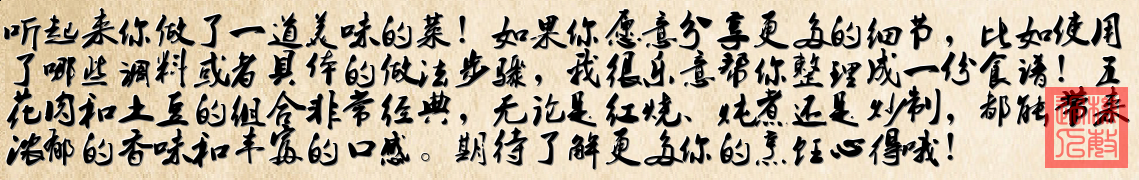 听起来你做了一道美味的菜！如果你愿意分享更多的细节，比如使用
了哪些调料或者具体的做法步骤，我很乐意帮你整理成一份食谱！五
花肉和土豆的组合非常经典，无论是红烧、炖煮还是炒制，都能带来
浓郁的香味和丰富的口感。期待了解更多你的烹饪心得哦！